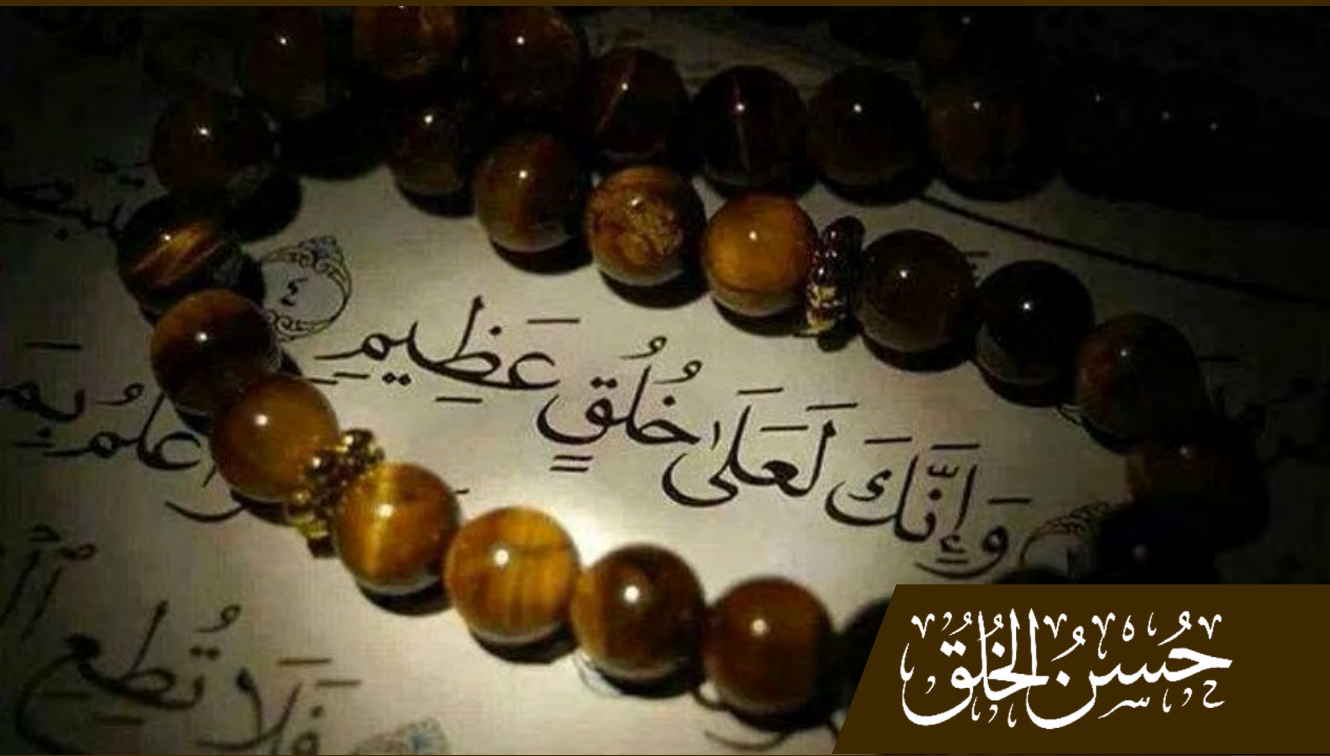 وَإِنَّكَ لَعَلَىٰ خُلُقٍ عَظِيمٍ ٤
فَلَا تُطِعِ
حُسْنُ الْخُلُقِ